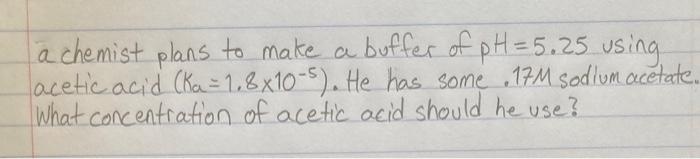 a chemist plans to make a buffer of pH=5.25 using
acetic acid (Ka=1.8x10⁻⁵). He has some .17M sodium acetate.
What concentration of acetic acid should he use?